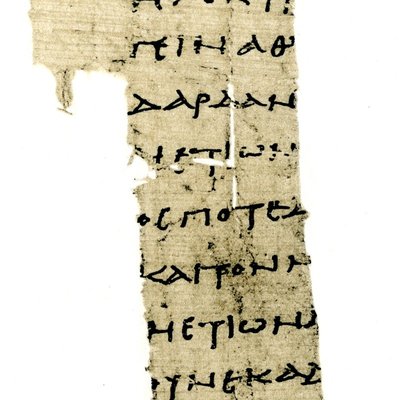 ΓΕΙΝΑΘ
ΔΑΡΔΑΝ
ΗΕΤΙΩΝ
ΟϹΠΟΤΕΔ
ΚΑΙΤΟΝΜ
ΗΕΤΙΩΝΑ
ΟΥΝΕΚΑ